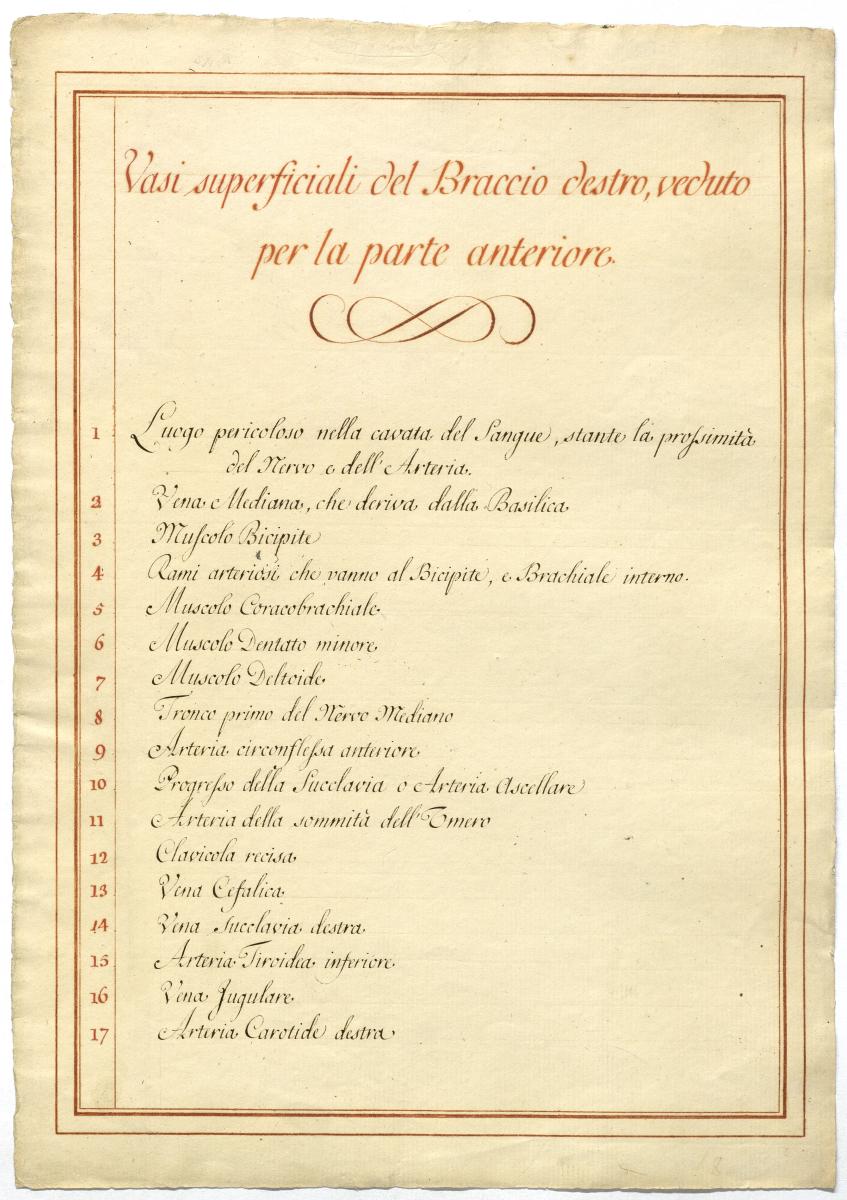 Vasi superficiali del Braccio destro, veduto
per la parte anteriore.
1 Luogo pericoloso nella cavata del Sangue, stante la proſsimità
del Nervo e dell'Arteria.
2 Vena Mediana, che deriva dalla Basilica
3 Muſcolo Bicipite
4 Rami arteriosi che vanno al Bicipite, e Brachiale interno.
5 Muscolo Coracobrachiale
6 Muscolo Dentato minore
7 Muscolo Deltoide
8 Tronco primo del Nervo Mediano
9 Arteria circonfleſsa anteriore
10 Progreſso della Succlavia o Arteria Ascellare
11 Arteria della sommità dell'Omero
12 Clavicola recisa
13 Vena Cefalica
14 Vena Succlavia destra
15 Arteria Tiroidea inferiore
16 Vena Jugulare
17 Arteria Carotide destra